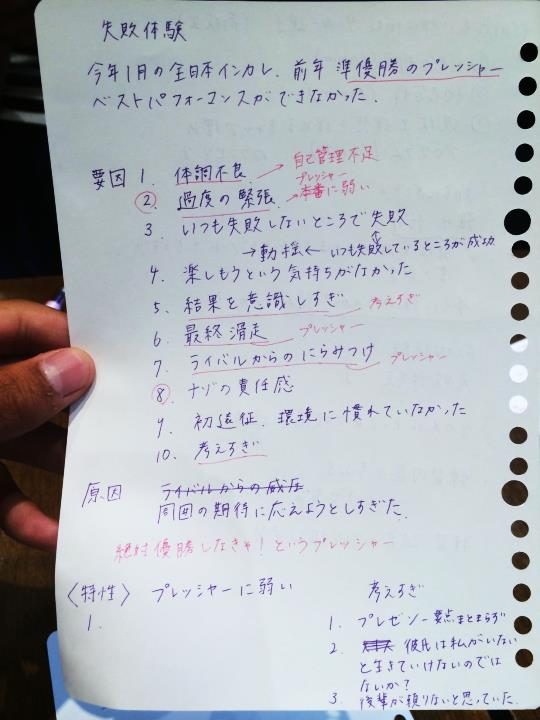 失敗体験
今年1月の全日本インカレ、前年 準優勝のプレッシャー
ベストパフォーマンスができなかった.
要因 1. 体調不良 → 自己管理不足
プレッシャー
② 過度の緊張. → 本番に弱い
3. いつも失敗しないところで失敗
→動揺← いつも失敗しているところが成功
4. 楽しもうという気持ちがなかった
5. 結果を意識しすぎ 考えすぎ
6. 最終滑走 プレッシャー
7. ライバルからのにらみつけ プレッシャー
⑧ ナゾの責任感
9. 初遠征. 環境に慣れていなかった
10. 考えすぎ
原因 ライバルからの威圧
周囲の期待に応えようとしすぎた.
絶対優勝しなきゃ!というプレッシャー
〈特性〉 プレッシャーに弱い
1.
考えすぎ
1. プレゼン→要点まとまらず
2. 彼氏は私がいない
と生きていけないのでは
ないか?
3. 後輩が頼りないと思っていた.